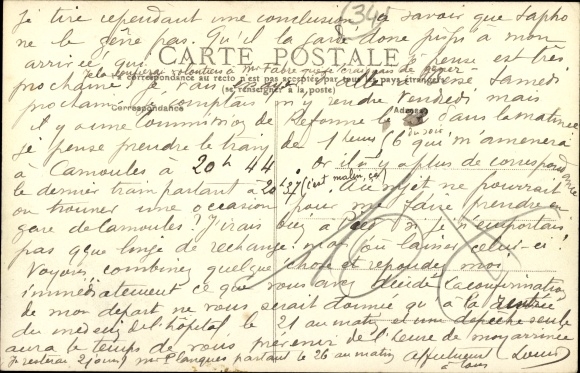 (34)
je tire cependant une conclusion à savoir que Sapho
ne le gêne pas. Qu'il la garde donc jusqu'à mon
arrivée, qui je pense est très
CARTE POSTALE
je la confierai volontiers à Mr Fabre que je crains de gêner
La correspondance au recto n'est pas acceptée par tous les pays étrangers
(se renseigner à la poste)
prochaine, je vais à Samedi
prochain. Je comptais m'y rendre Vendredi mais
Correspondance
Adresse
il y a une Commission de Réforme le dans la matinée
je pense prendre le train de 1 heure 6 qui m'amènera
du soir
à Carnoules à 20h 44. Or il n'y a plus de correspondance
le dernier train partant à 20h 37 (c'est malin, ça). Auguste ne pourrait
ou trouver une occasion pour me faire prendre en
gare de Carnoules? J'irais à pied si je n'emportais
pas que linge de rechange; mais où laisser celui-ci
Voyons combinez quelque chose et répondez moi
immédiatement ce que vous avez décidé. La confirmation
de mon départ ne vous serait donnée qu'à la rentrée
du médecin de l'hôpital, le 21 au matin et une dépêche seule
aura le temps de vous prévenir de l'heure de mon arrivée
Je resterai 2 jours, partant le 26 au matin Affectueusement
à tous Louis